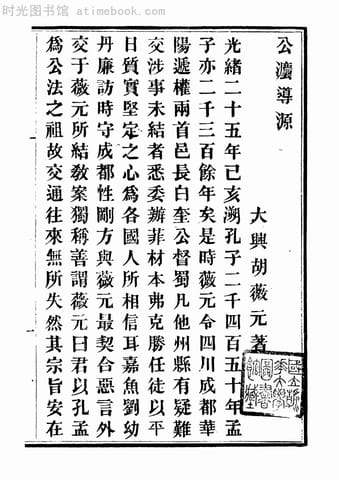 时光图书馆 atimebook.com
公灋導源
大興胡薇元著
光緒二十五年己亥溯孔子二千四百五十年孟
子亦二千三百餘年矣是時薇元令四川成都華
陽遞權兩首邑長白奎公督蜀凡他州縣有疑難
交涉事未結者悉委辦菲材本弗克勝任徒以平
日質實堅定之心爲各國人所相信耳嘉魚劉幼
丹廉訪時守成都性剛方與薇元最契合惡言外
交于薇元所結敎案獨稱善謂薇元曰君以孔孟
爲公法之祖故交通往來無所失然其宗旨安在